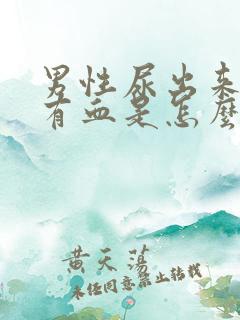 男性尿出来
有血是怎么
黄天荡
未经同意禁止转载